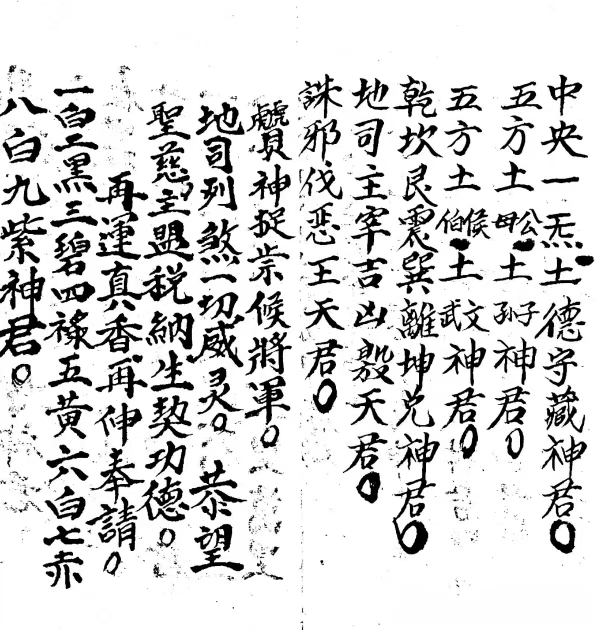 中央一炁土德守藏神君○
五方土公母土子孫神君○
五方土侯伯土文武神君○
乾坎艮震巽離坤兌神君○
地司主宰吉凶殷天君○
誅邪伐惡王天君○
神捉祟候將軍○
地司列煞一切威灵○恭望
聖慈主盟税納生契功德○
再運真香再伸奉請○
一白二黑三碧四祿五黄六白七赤
八白九紫神君○